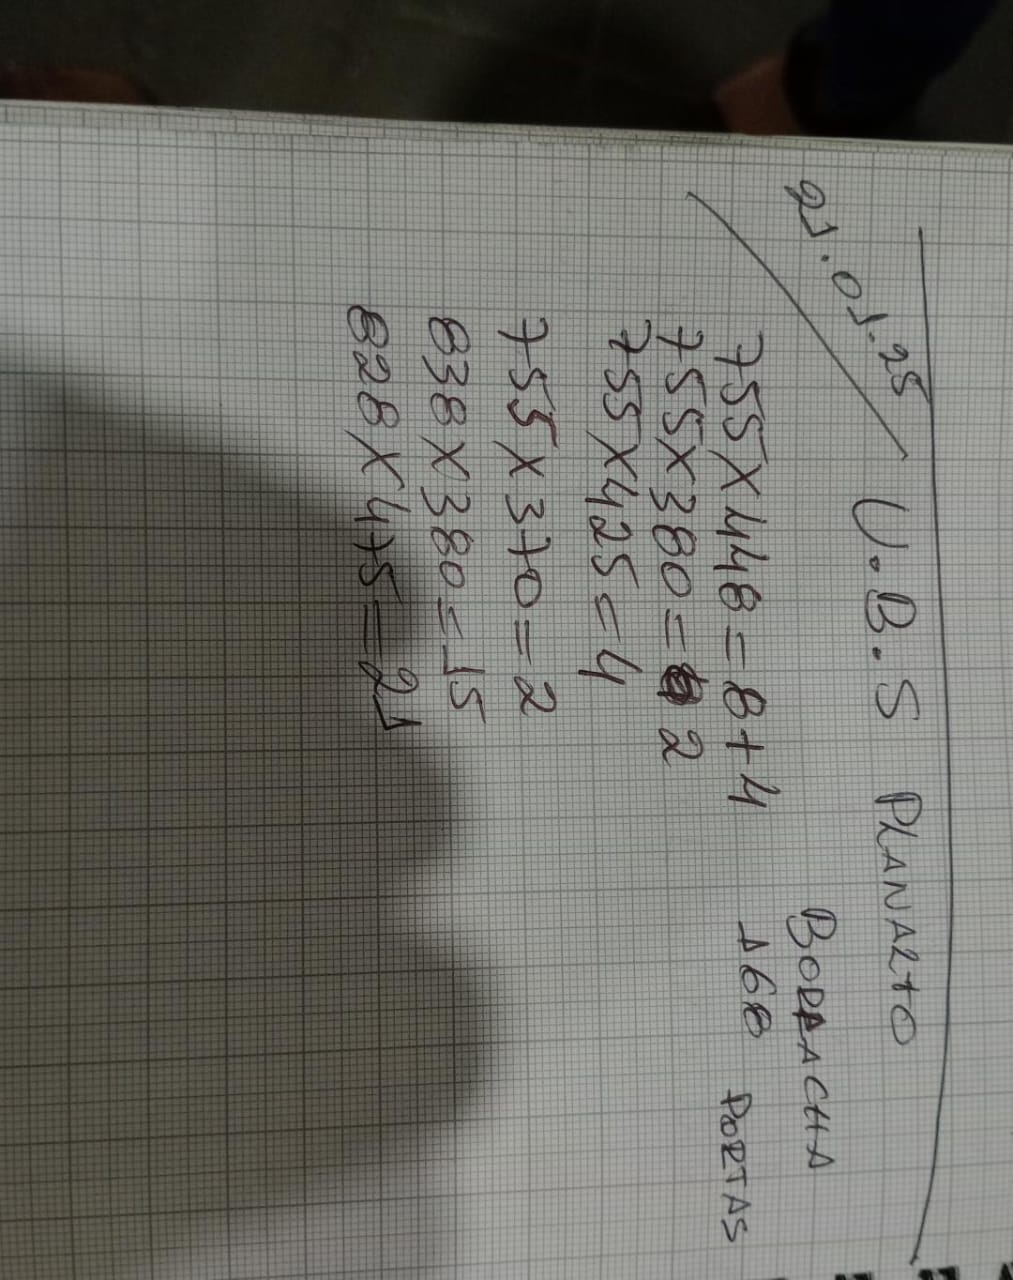 21.01.25
U.B.S PLANALTO
BORRACHA
755X448=8+4 168 PORTAS
755X380=2
755X425=4
755X370=2
838X380=15
828X475=21